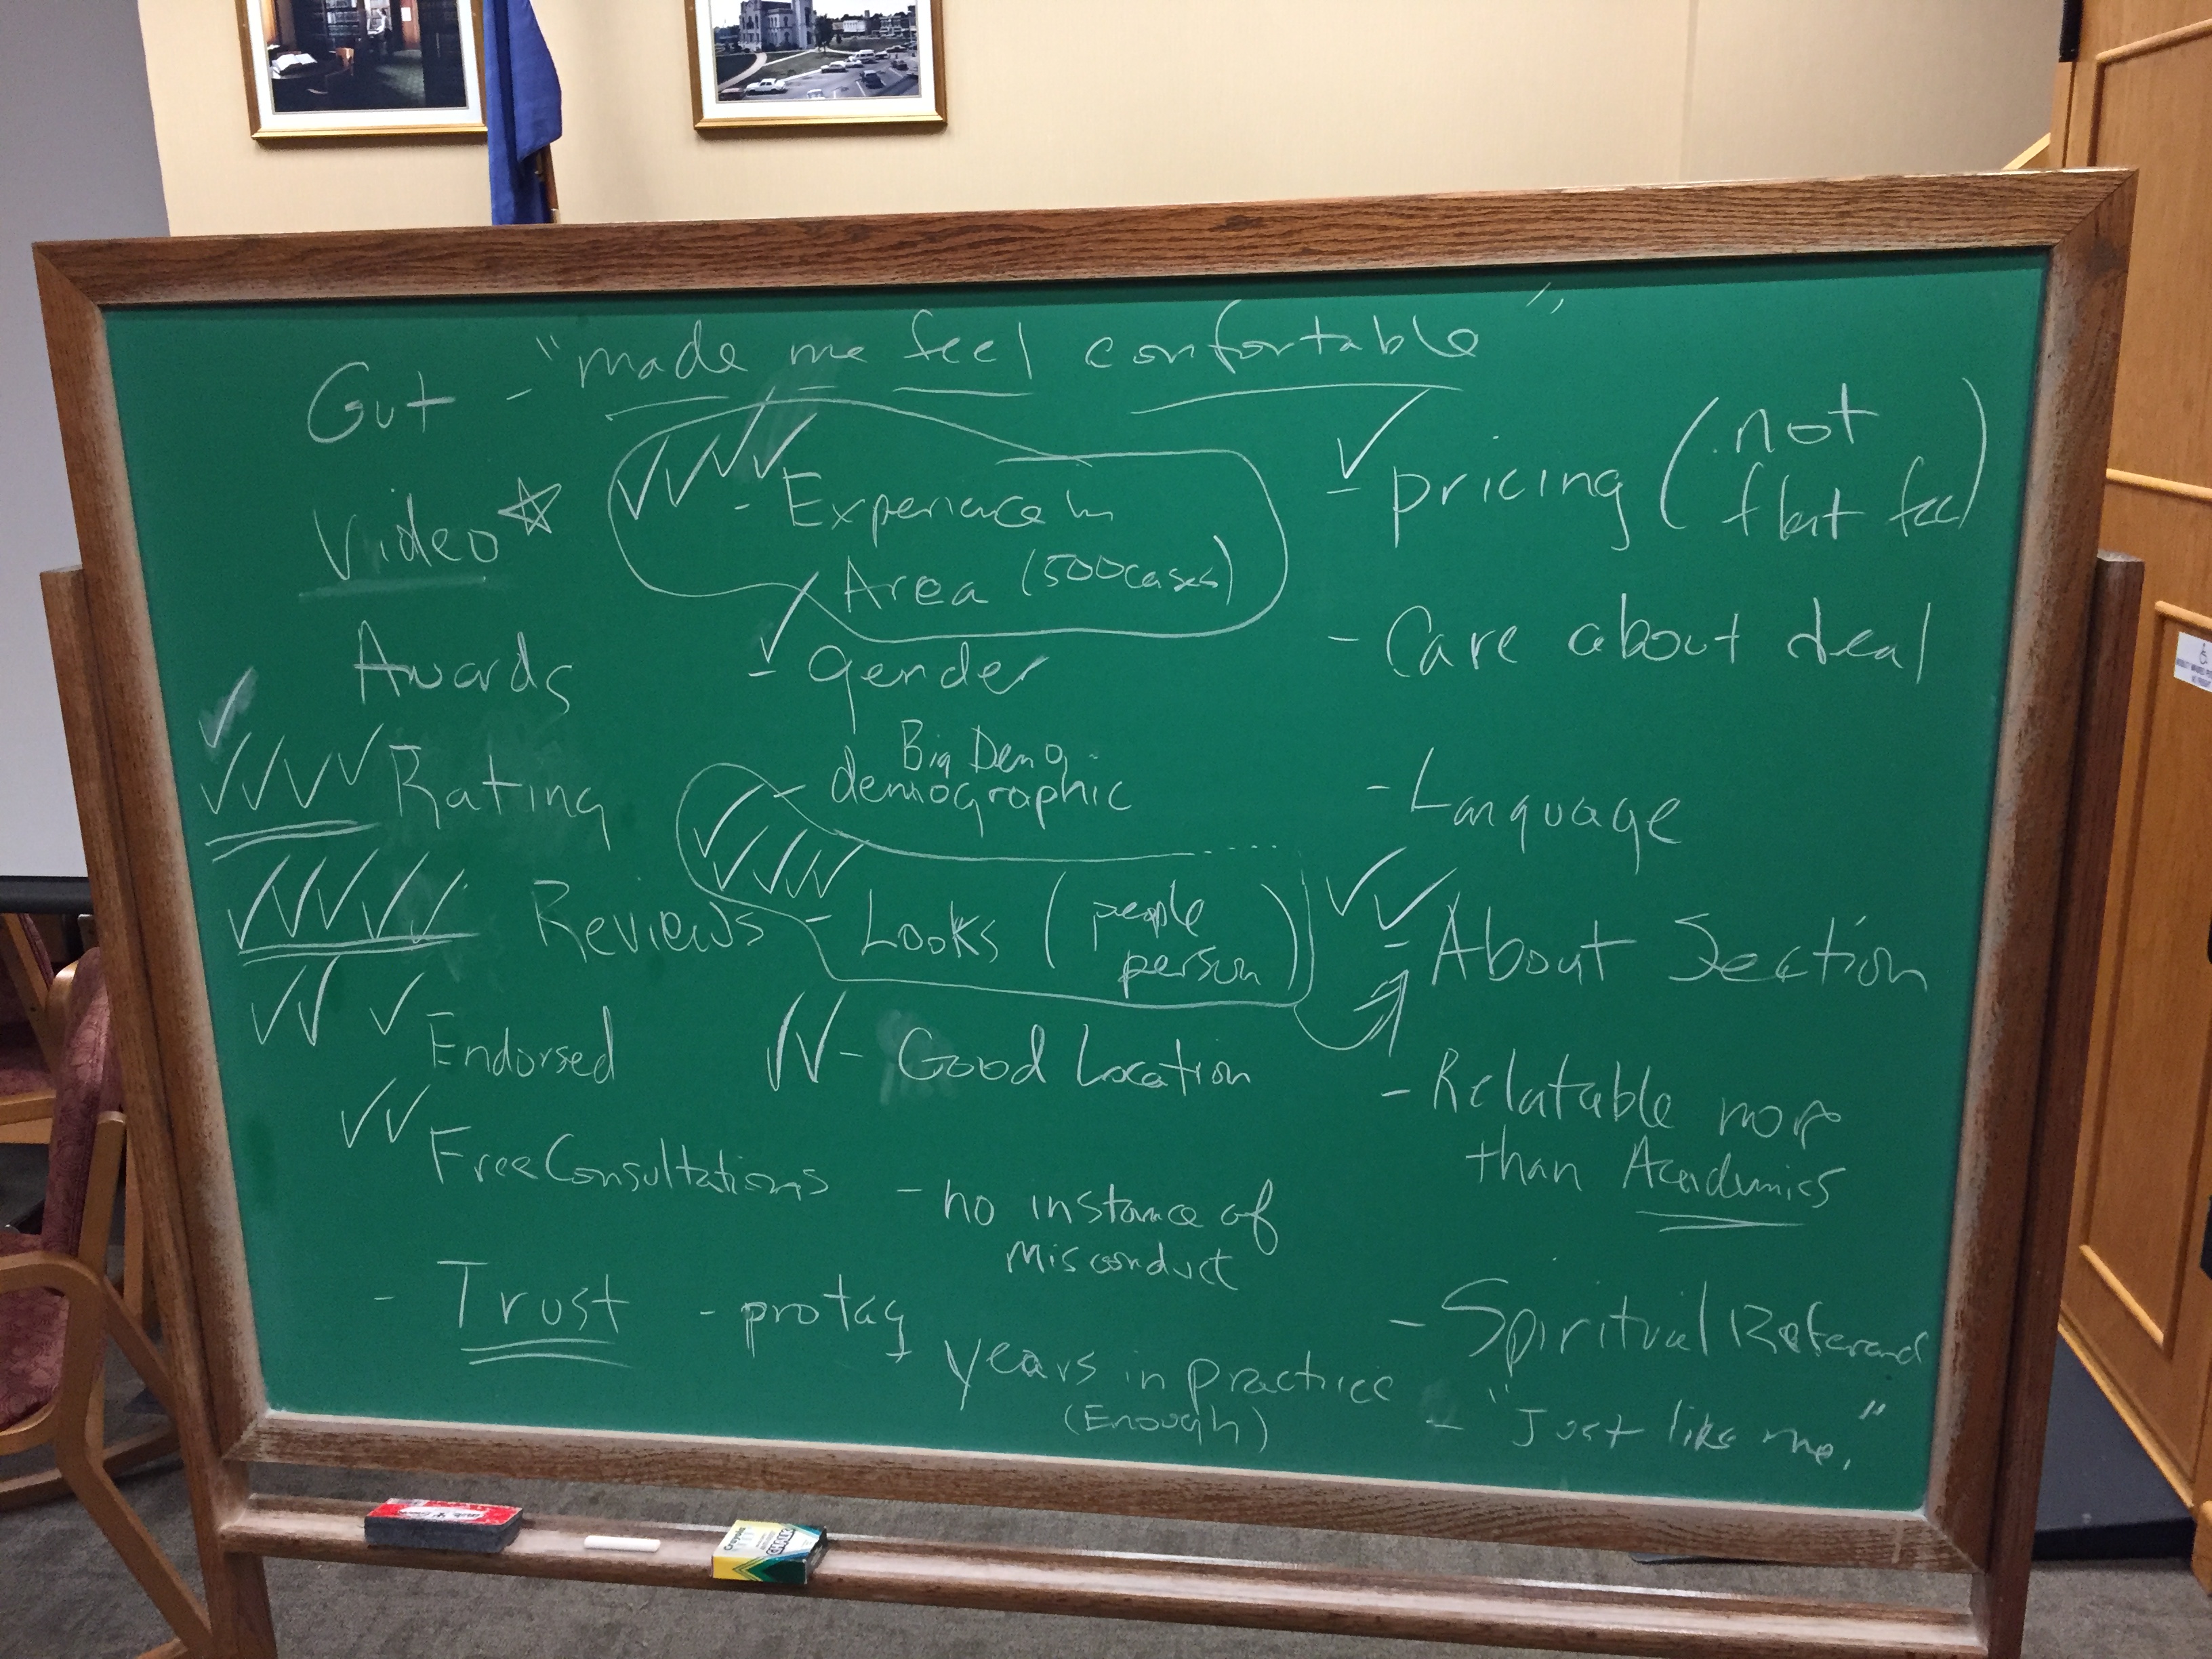 Gut - "made me feel confortable"
Video
Awards
Rating
Reviews
Endorsed
Free Consultations
- Trust - protag
- Experience in
Area (500 cases)
- gender
Big Demo
- demographic
- Looks (people
person)
- Good Location
- no instance of
misconduct
years in practice
(Enough)
- pricing (not
flat fee)
- Care about deal
- Language
- About Section
- Relatable more
than Academics
- Spiritual
- "Just like me."
Crayola